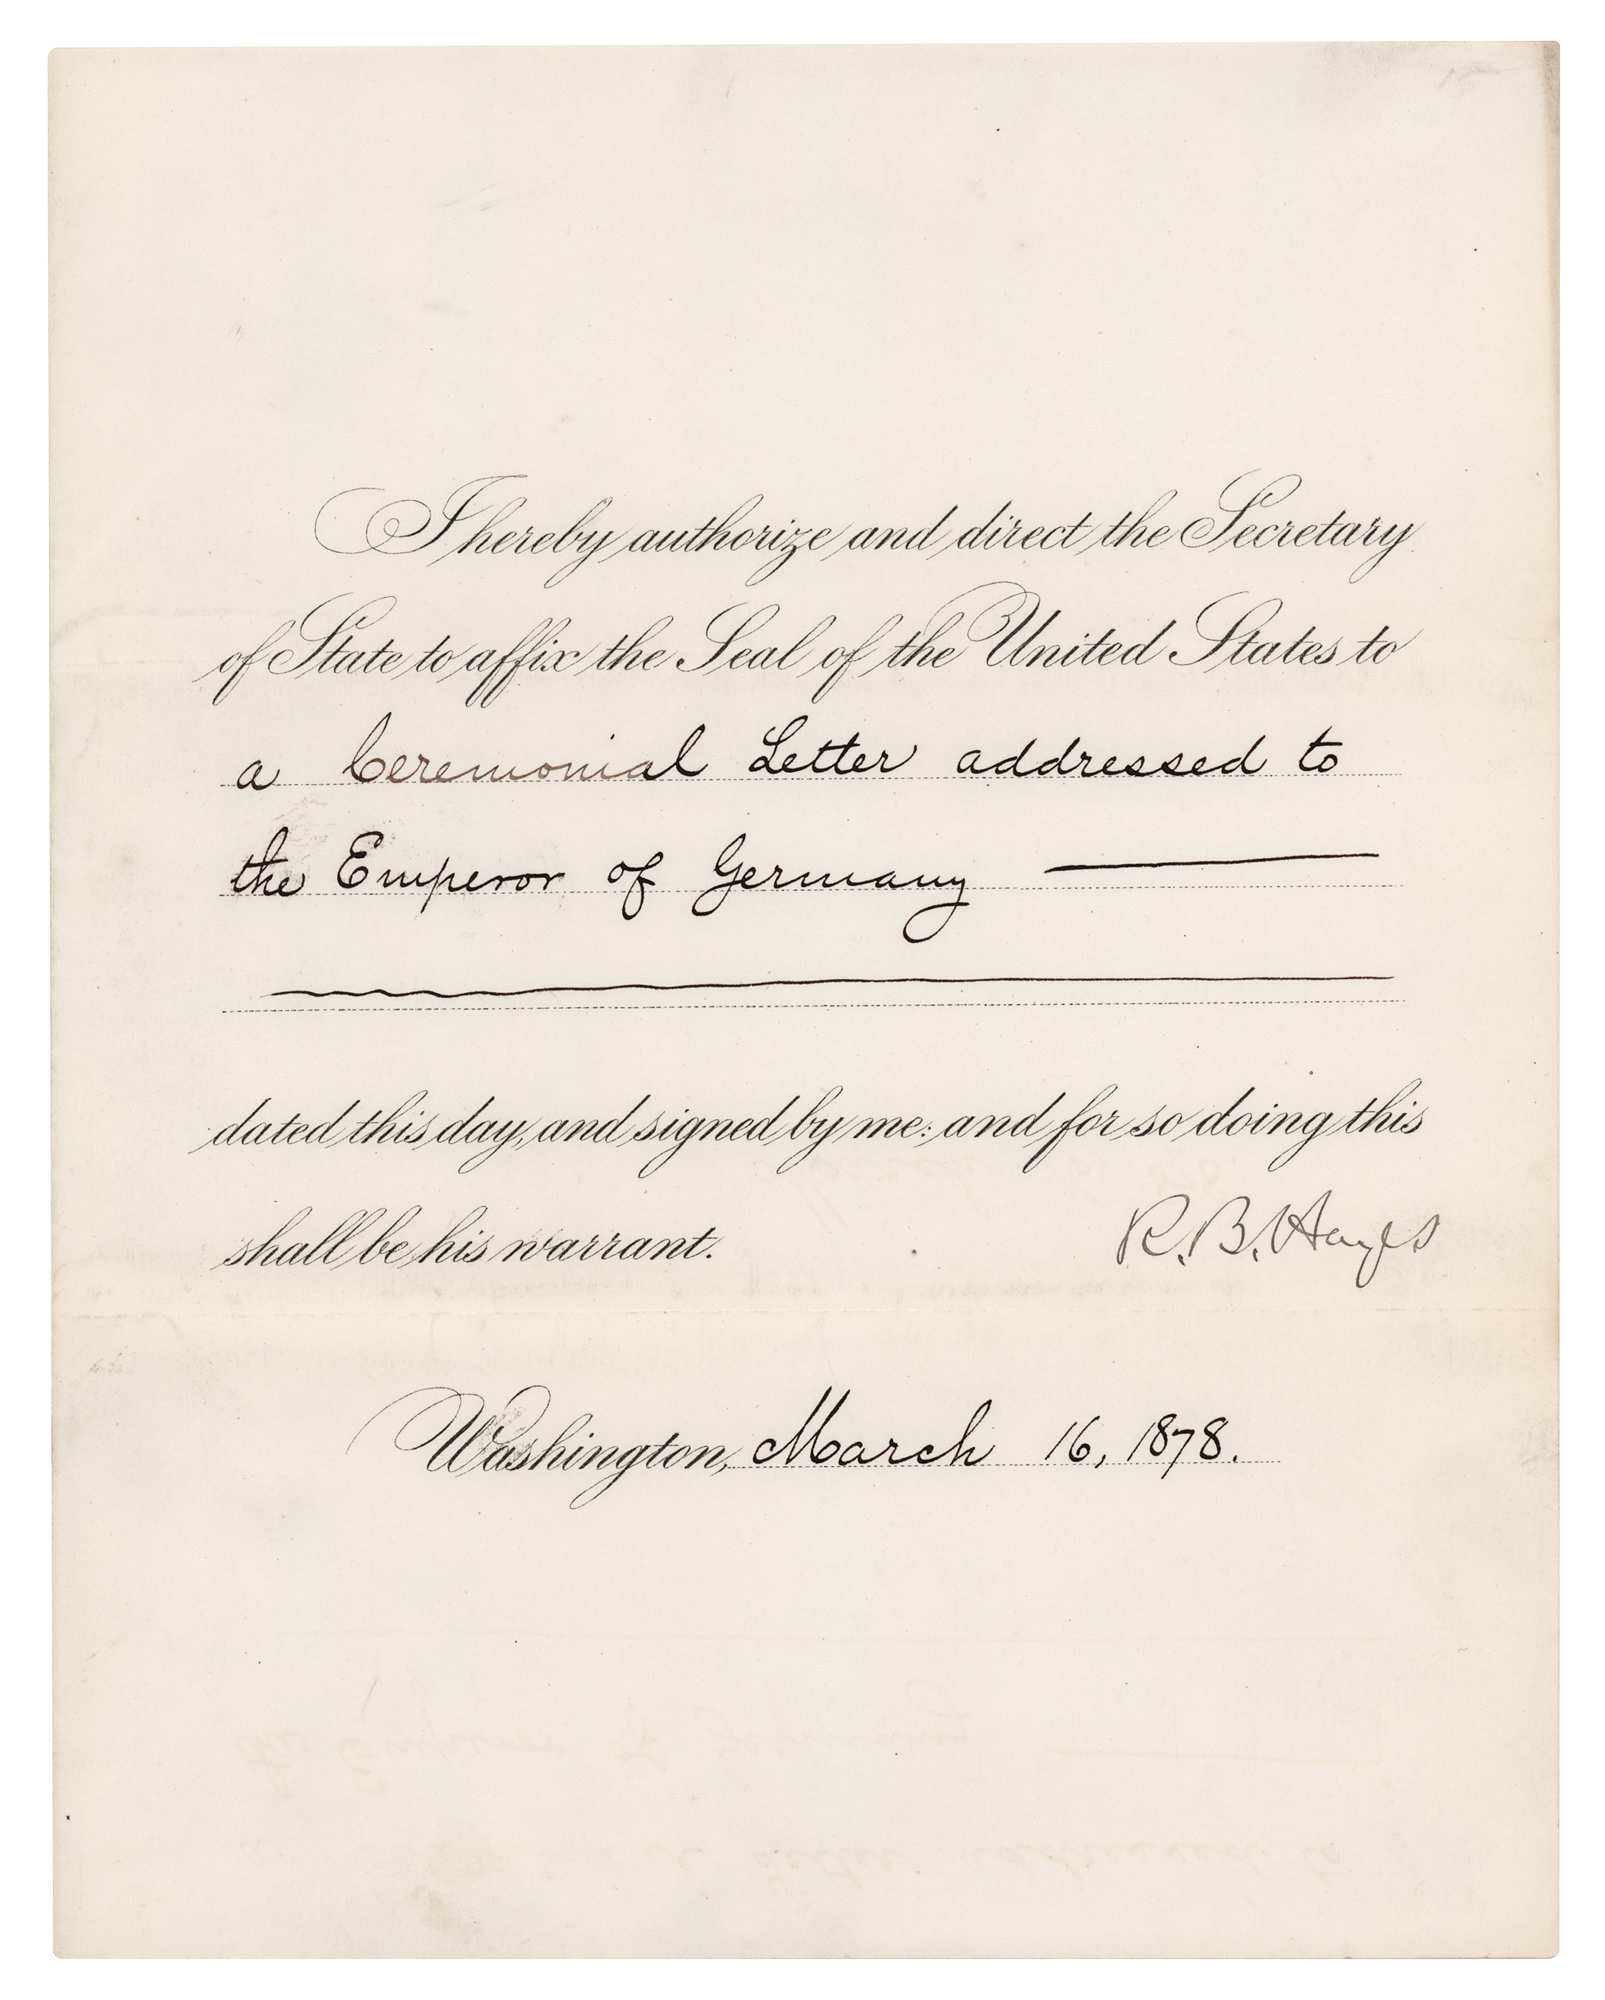 I hereby authorize and direct the Secretary
of State to affix the Seal of the United States to
a Ceremonial Letter addressed to
the Emperor of Germany
dated this day, and signed by me: and for so doing this
shall be his warrant.
R. B. Hayes
Washington, March 16, 1878.